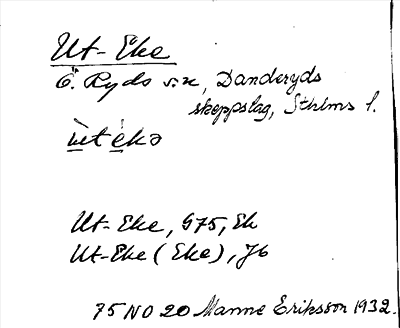 Ut-Eke
Ö. Ryds sn, Danderyds
skeppslag, Sthlms l.
ùtékə
Ut-Eke, G75, Ek
Ut-Eke (Eke), Jb
75 NO 20 Manne Eriksson 1932.